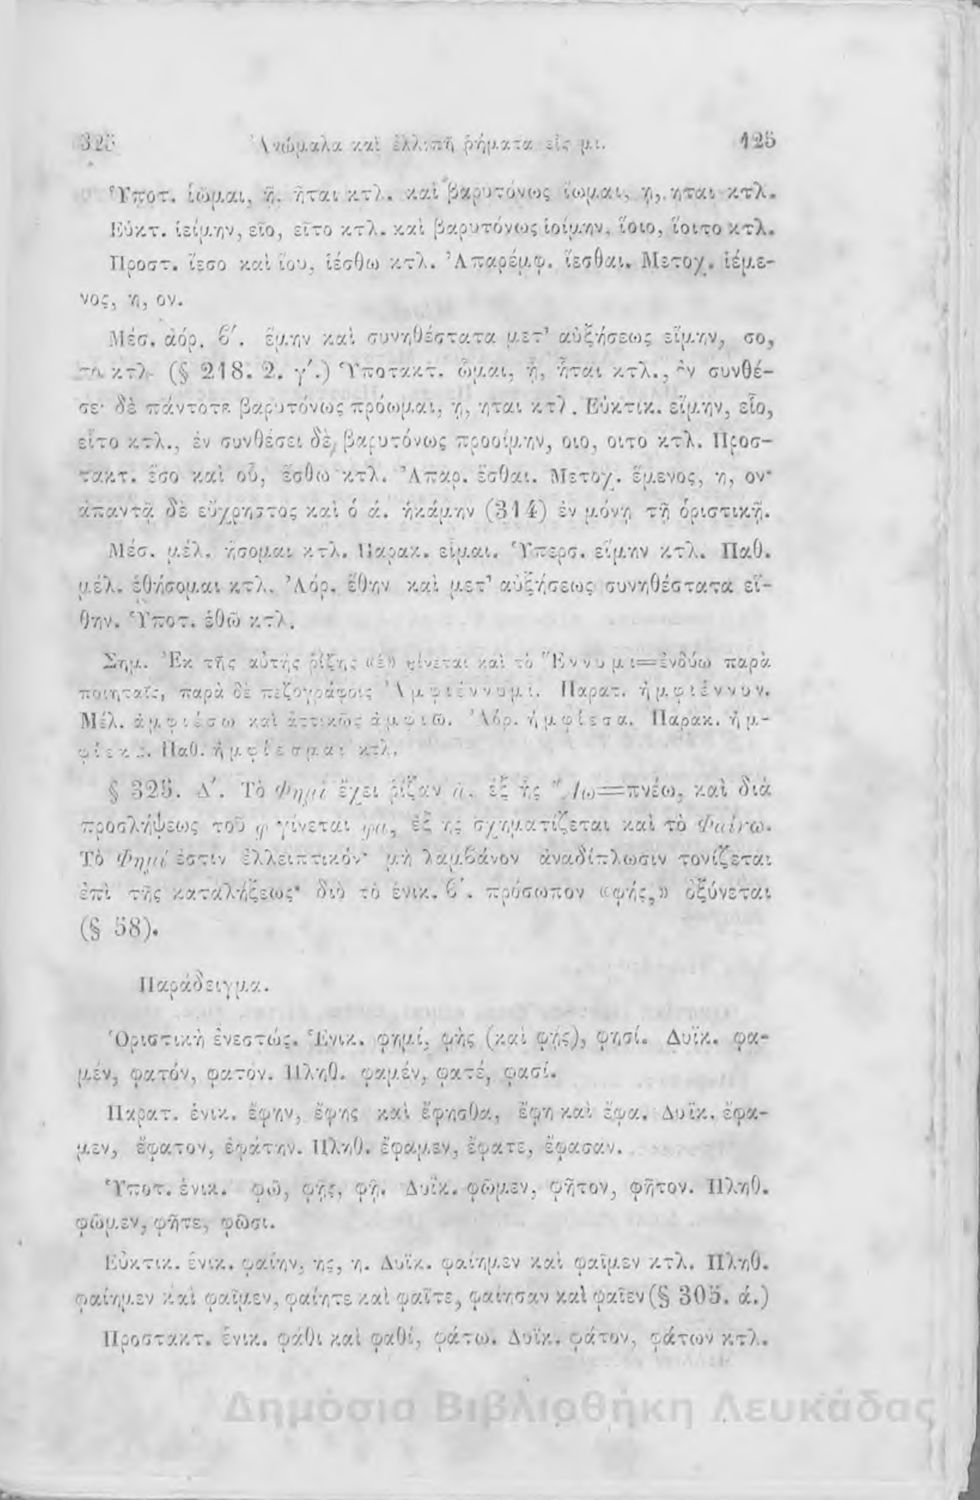 325 Ἀνώμαλα καὶ ἐλλιπῆ ῥήματα εἰς μι. 125
Ὑποτ. ἱῶμαι, ῇ, ῆται κτλ. καὶ βαρυτόνως ἵωμαι, ῃ, ηται κτλ.
Εὐκτ. ἱείμην, εῖο, εῖτο κτλ. καὶ βαρυτόνως ἱοίμην, ἵοιο, ἵοιτο κτλ.
Προστ. ἵεσο καὶ ἵου, ἱέσθω κτλ. Ἀπαρέμφ. ἵεσθαι. Μετοχ. ἱέμε-
νος, η, ον.
Μέσ. ἀόρ. β΄. ἕμην καὶ συνηθέστατα μετ' αὐξήσεως εἵμην, σο,
το κτλ. (§ 218. 2. γ΄.) Ὑποτακτ. ὧμαι, ᾗ, ἧται κτλ., ἐν συνθέ-
σει δὲ πάντοτε βαρυτόνως πρόωμαι, ῃ, ηται κτλ. Εὐκτικ. εἵμην, εἷο,
εἷτο κτλ., ἐν συνθέσει δὲ βαρυτόνως προοίμην, οιο, οιτο κτλ. Προσ-
τακτ. ἕσο καὶ οὗ, ἕσθω κτλ. Ἀπαρ. ἕσθαι. Μετοχ. ἕμενος, η, ον·
ἀπαντᾷ δὲ εὔχρηστος καὶ ὁ ά. ἡκάμην (314) ἐν μόνῃ τῇ ὁριστικῇ.
Μέσ. μέλ. ἥσομαι κτλ. Παρακ. εἷμαι. Ὑπερσ. εἵμην κτλ. Παθ.
μέλ. ἑθήσομαι κτλ. Ἀόρ. ἕθην καὶ μετ' αὐξήσεως συνηθέστατα εἵ-
θην. Ὑποτ. ἑθῶ κτλ.
Σημ. Ἐκ τῆς αὐτῆς ῥίζης «ἑ» γίνεται καὶ τὸ Ἕννυμι=ἐνδύω παρὰ
ποιηταῖς, παρὰ δὲ πεζογράφοις Ἀμφιέννυμι. Παρατ. ἠμφιέννυν.
Μέλ. ἀμφιέσω καὶ ἀττικῶς ἀμφιῶ. Ἀόρ. ἠμφίεσα. Παρακ. ἠμ-
φίεκα. Παθ. ἠμφίεσμαι κτλ.
§ 325. Δ΄. Τὸ Φημί ἔχει ῥίζαν ἀ, ἐξ ἧς Ἄω=πνέω, καὶ διὰ
προσλήψεως τοῦ φ γίνεται φα, ἐξ ἧς σχηματίζεται καὶ τὸ Φαίνω.
Τὸ Φημί ἐστιν ἐλλειπτικόν· μὴ λαμβάνον ἀναδίπλωσιν τονίζεται
ἐπὶ τῆς καταλήξεως· διὸ τὸ ἑνικ. β΄. πρόσωπον «φής,» ὀξύνεται
(§ 58).
Παράδειγμα.
Ὁριστικὴ ἐνεστώς. Ἑνικ. φημί, φὴς (καὶ φῄς), φησί. Δυϊκ. φα-
μέν, φατόν, φατόν. Πληθ. φαμέν, φατέ, φασί.
Παρατ. ἑνικ. ἔφην, ἔφης καὶ ἔφησθα, ἔφη καὶ ἔφα. Δυϊκ. ἔφα-
μεν, ἔφατον, ἐφάτην. Πληθ. ἔφαμεν, ἔφατε, ἔφασαν.
Ὑποτ. ἑνικ. φῶ, φῇς, φῇ. Δυϊκ. φῶμεν, φῆτον, φῆτον. Πληθ.
φῶμεν, φῆτε, φῶσι.
Εὐκτικ. ἑνικ. φαίην, ης, η. Δυϊκ. φαίημεν καὶ φαῖμεν κτλ. Πληθ.
φαίημεν καὶ φαῖμεν, φαίητε καὶ φαῖτε, φαίησαν καὶ φαῖεν (§ 305. ά.)
Προστακτ. ἑνικ. φάθι καὶ φαθί, φάτω. Δυϊκ. φάτον, φάτων κτλ.
Δημόσια Βιβλιοθήκη Λευκάδας